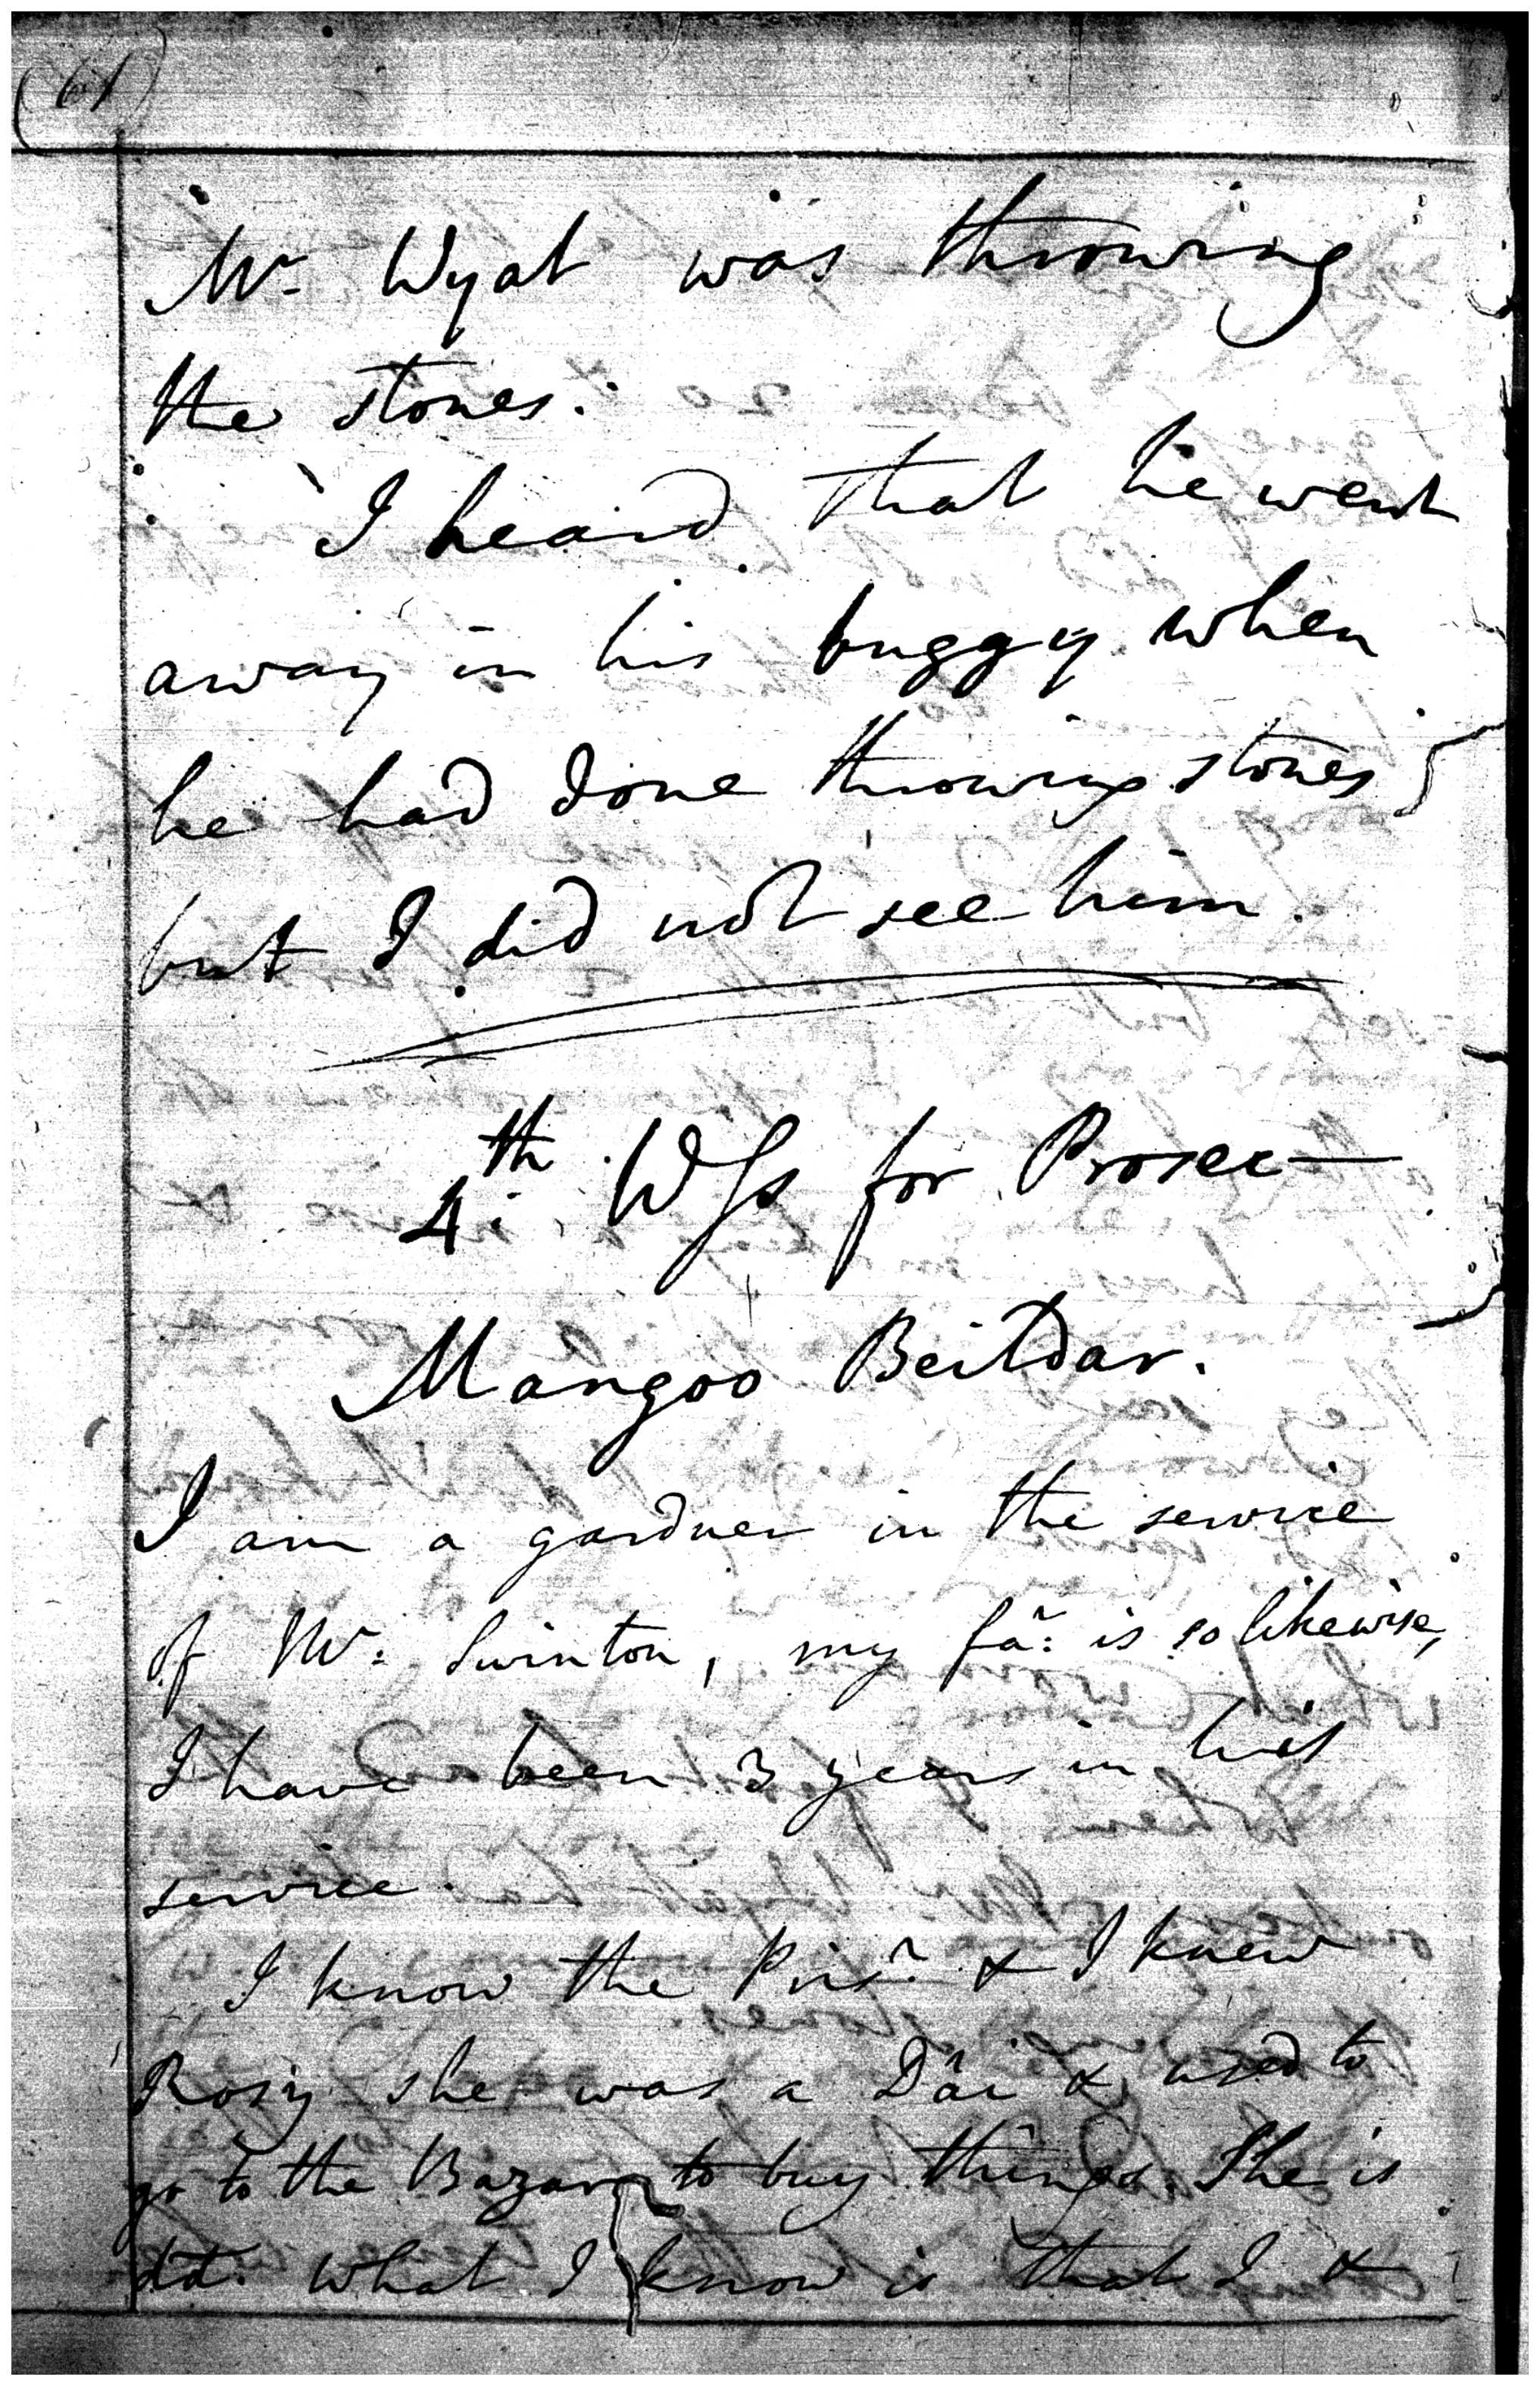 (61)
Mr. Wyat was throwing
the stones.
I heard that he went
away in his buggy when
he had done throwing stones
but I did not see him.
4th. Wss for Prosec—
Mangoo Beildar.
I am a gardner in the service
of Mr. Swinton, my fa.r is so likewise,
I have been 3 years in his
service.
I know the Prisr. & I knew
Rosy she was a Dâi & used to
go to the Bazar to buy things. She is
dd. what I know is that I &